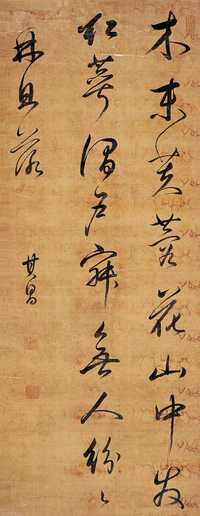 木末芙蓉花山中發
紅萼澗戶寂無人紛〻
開且落
其昌